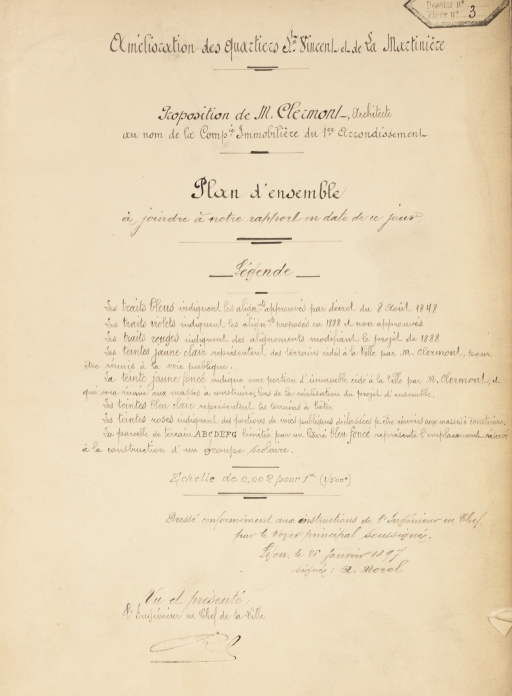 Dossier N°
Pièce N° 3
Amélioration des quartiers St Vincent et de La Martinière
Proposition de M. Clermont, Architecte
au nom de la Compie Immobilière du 1er Arrondissement
Plan d'ensemble
à joindre à notre rapport en date de ce jour
Légende
Les traits bleus indiquent les alignts approuvés par décret du 2 Août 1848
Les traits violets indiquent les alignts proposés en 1888 et non approuvés
Les traits rouges indiquent des alignements modifiant le projet de 1888
Les teintes jaune clair représentent des terrains cédés à la Ville par M. Clermont, pour
être réunis à la voie publique.
La teinte jaune foncé indique une portion d'immeuble cédé à la Ville par M. Clermont, et
qui sera réunie aux masses à construire, lors de la réalisation du projet d'ensemble.
Les teintes bleu clair représentent les terrains à bâtir
Les teintes roses indiquent des portions de voies publiques déclassées p. être réunies aux masses à construire.
La parcelle de terrain ABCDEFG limitée par un liseré bleu foncé représente l'emplacement réservé
à la construction d'un groupe scolaire.
Echelle de 0,002 pour 1m (1/500e)
Dressé conformément aux instructions de l'Ingénieur en Chef
par le Voyer principal soussigné.
Lyon, le 25 Janvier 1897
signé : A. Morel
Vu et présenté :
L'Ingénieur en Chef de la Ville